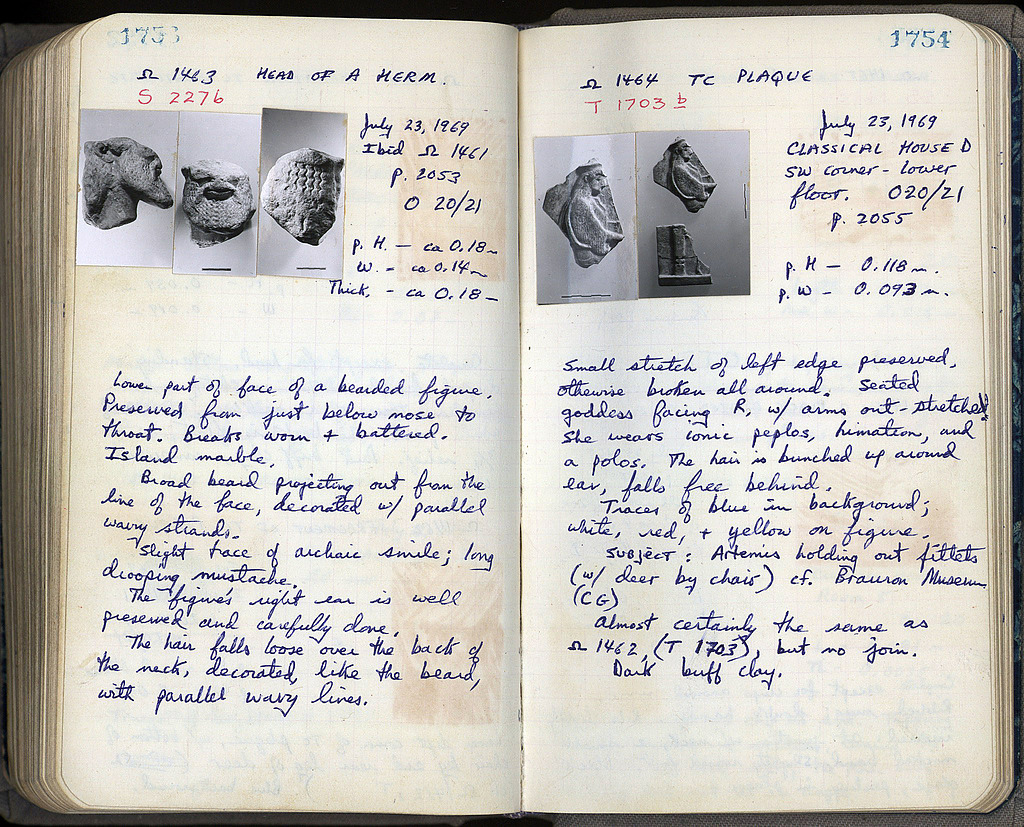 1753
Ω 1463 HEAD OF A HERM.
S 2276
July 23, 1969
Ibid Ω 1461
p. 2053
O 20/21
p. H. — ca 0.18 m
W. - ca 0.14 m
Thick. - ca 0.18 —
Lower part of face of a bearded figure.
Preserved from just below nose to
throat. Breaks worn + battered.
Island marble.
Broad beard projecting out from the
line of the face, decorated w/ parallel
wavy strands.
Slight trace of archaic smile; long
drooping mustache.
The figure's right ear is well
preserved and carefully done.
The hair falls loose over the back of
the neck, decorated, like the beard,
with parallel wavy lines.
1754
Ω 1464 TC PLAQUE
T 1703 b
July 23, 1969
CLASSICAL HOUSE D
SW corner - lower
floor. O20/21
p. 2055
p. H — 0.118 m.
p. W — 0.093 m.
Small stretch of left edge preserved,
otherwise broken all around. Seated
goddess facing R, w/ arms out-stretched.
She wears ionic peplos, himation, and
a polos. The hair is bunched up around
ear, falls free behind.
Traces of blue in background;
white, red, + yellow on figure.
SUBJECT: Artemis holding out fillets
(w/ deer by chair) cf. Brauron Museum
(CG)
Almost certainly the same as
Ω 1462, (T 1703), but no join.
Dark buff clay.